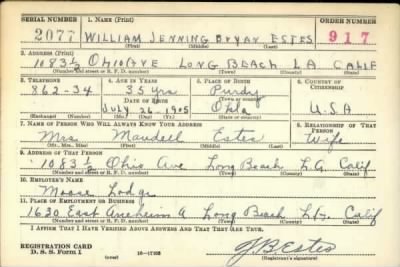 SERIAL NUMBER 1. NAME (Print) ORDER NUMBER
2077 WILLIAM JENNING BRYAN ESTES 917
(First) (Middle) (Last)
2. ADDRESS (Print)
1083½ OHIO AVE LONG BEACH LA CALIF
(Number and street or R. F. D. number) (Town) (County) (State)
3. TELEPHONE 4. AGE IN YEARS 5. PLACE OF BIRTH 6. COUNTRY OF CITIZENSHIP
862-34 35 yrs Purdy
DATE OF BIRTH (Town or county)
July 26-1905 Okla U.S.A
(Exchange) (Number) (Mo.) (Day) (Yr.) (State or country)
7. NAME OF PERSON WHO WILL ALWAYS KNOW YOUR ADDRESS 8. RELATIONSHIP OF THAT PERSON
Mrs. Maudell Estes Wife
(Mr., Mrs., Miss) (First) (Middle) (Last)
9. ADDRESS OF THAT PERSON
1083½ Ohio Ave Long Beach L.A. Calif
(Number and street or R. F. D. number) (Town) (County) (State)
10. EMPLOYER'S NAME
Moose Lodge
11. PLACE OF EMPLOYMENT OR BUSINESS
1630 East Anaheim Long Beach L.A. Calif
(Number and street or R. F. D. number) (Town) (County) (State)
I AFFIRM THAT I HAVE VERIFIED ABOVE ANSWERS AND THAT THEY ARE TRUE.
REGISTRATION CARD
D. S. S. Form 1 (over) Estes
(Registrant's signature)